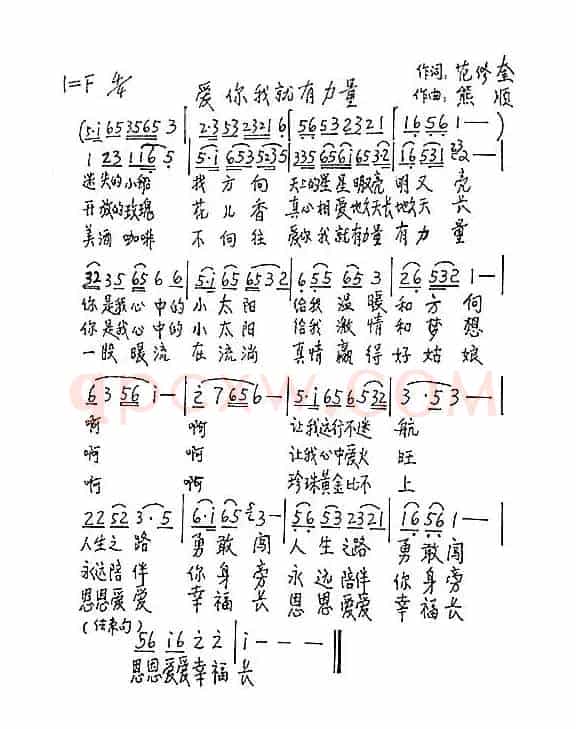 1=F 4/4 爱你我就有力量 作词:范修奎
作曲:熊顺
(5·i 653565 3 | 2·3532321 6 | 56532321 | 1656 1 — )
1 23 116 5 | 5·i 6535235 | 335656i6532 | 16531 2 —
迷失的小船 找方向 天上的星星眼亮 明又亮
开放的玫瑰 花儿香 真心相爱地久天长地久天长
美酒咖啡 不向往 爱你我就有力量有力量
3235 65 6 6 | 5·i65 6532 | 6555 65 3 | 26 532 1 —
你是我心中的小太阳 给我温暖和方向
你是我心中的小太阳 给我激情和梦想
一股暖流在流淌 真情赢得好姑娘
6 3 56 i — | 2 7 65 6 — | 5·i 656 6532 | 3 ·5 3 —
啊 啊 让我远行不迷航
啊 啊 让我心中爱火旺
啊 啊 珍珠黄金比不上
22 52 3·5 | 6·i 65 3 — | 56 53 2321 | 16 56 1 —
人生之路 勇敢闯 人生之路 勇敢闯
永远陪伴 你身旁 永远陪伴 你身旁
恩恩爱爱 幸福长 恩恩爱爱 幸福长
(结束句)
56 i6 2 2 | i — — —
恩恩爱爱幸福长
qpcxw.com